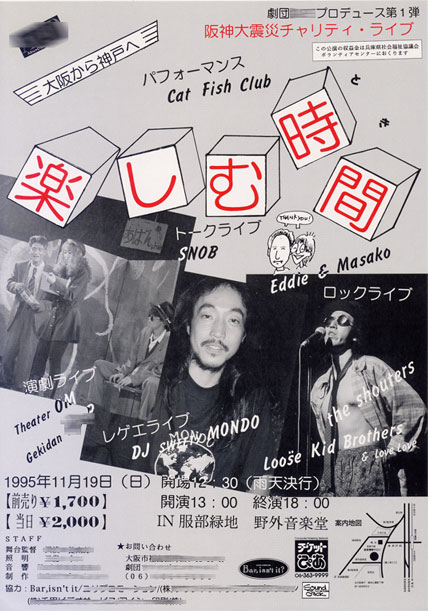 劇団 プロデュース第1弾
阪神大震災チャリティ・ライブ
この公演の収益金は兵庫県社会福祉協議会
ボランティアセンターにおくられます。
大阪から神戸へ
パフォーマンス
Cat Fish Club
とき
楽しむ時間
トークライブ
SNOB
THANK YOU!
Eddie & Masako
ロックライブ
演劇ライブ
Theater
Gekidan
レゲエライブ
DJ MONDO
the shouters
Looşe Kid Brothers
& Love Love
1995年11月19日(日) 開場12:30(雨天決行)
【前売り¥1,700】 開演13:00 終演18:00
【当日¥2,000】 IN 服部緑地 野外音楽堂
STAFF
舞台監督
照明
音響
制作
★お問い合わせ
大阪市
劇団
(06)
Bar,isn't it?
チケットぴあ
06-363-9999
案内地図
協力:Bar,isn't it/